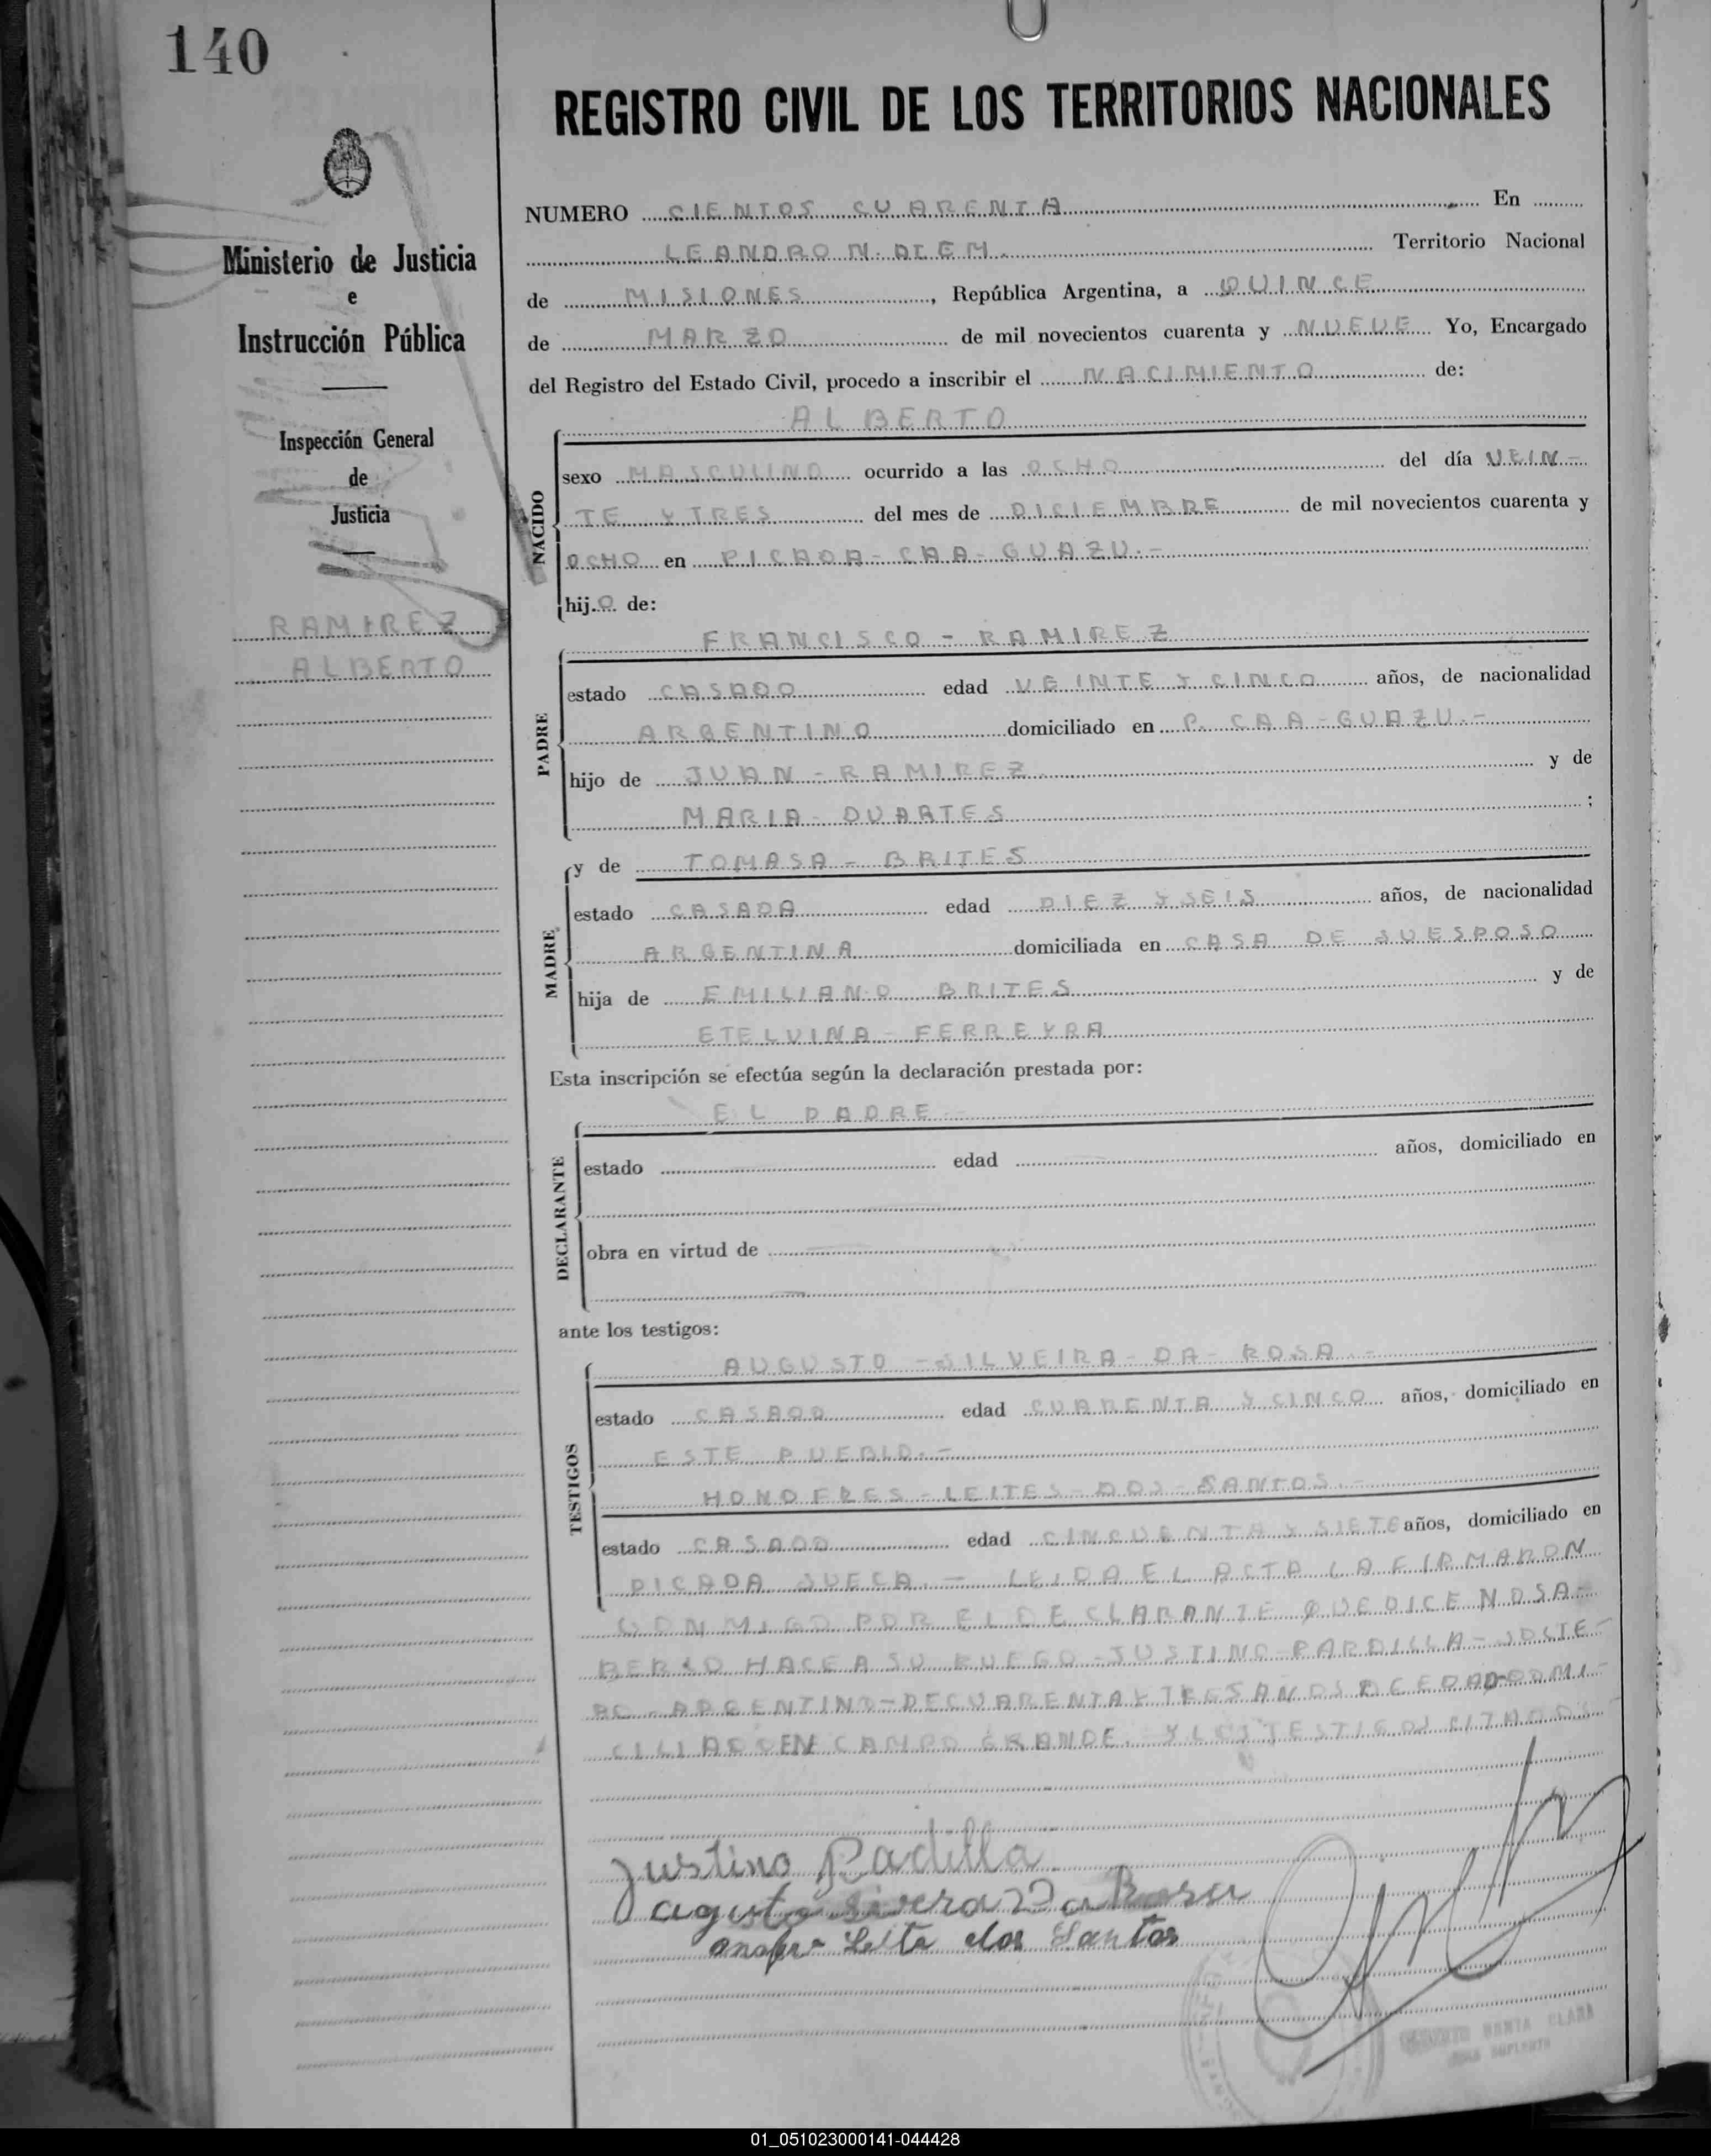 140
REGISTRO CIVIL DE LOS TERRITORIOS NACIONALES
Ministerio de Justicia
e
Instrucción Pública
Inspección General
de
Justicia
RAMIREZ
ALBERTO
NUMERO CIENTOS CUARENTA En
LEANDRO N. ALEM. Territorio Nacional
de MISIONES, República Argentina, a QUINCE
de MARZO de mil novecientos cuarenta y NUEVE Yo, Encargado
del Registro del Estado Civil, procedo a inscribir el NACIMIENTO de:
ALBERTO
NACIDO
sexo MASCULINO ocurrido a las OCHO del día VEIN-
TE Y TRES del mes de DICIEMBRE de mil novecientos cuarenta y
OCHO en PICADA-CAA-GUAZU.-
hij.O de:
FRANCISCO - RAMIREZ
PADRE
estado CASADO edad VEINTE Y CINCO años, de nacionalidad
ARGENTINO domiciliado en P. CAA-GUAZU.-
hijo de JUAN-RAMIREZ. y de
MARIA-DUARTES ;
y de TOMASA - BRITES
MADRE
estado CASADA edad DIEZ Y SEIS años, de nacionalidad
ARGENTINA domiciliada en CASA DE SU ESPOSO
hija de EMILIANO BRITES y de
ETELVINA-FERREYRA
Esta inscripción se efectúa según la declaración prestada por:
EL PADRE-
DECLARANTE
estado edad años, domiciliado en
obra en virtud de
ante los testigos:
AUGUSTO-SILVEIRA-DA-ROSA.-
TESTIGOS
estado CASADO edad CUARENTA Y CINCO años, domiciliado en
ESTE PUEBLO.-
HONOFRES-LEITES-DOS-SANTOS.-
estado CASADO edad CINCUENTA Y SIETE años, domiciliado en
PICADA SUECA.- LEIDA EL ACTA LA FIRMARON
CONMIGO POR EL DECLARANTE QUE DICE NO SA-
BERLO HACE A SU RUEGO-JUSTINO-PARDILLA-SOLTE-
RO-ARGENTINO-DE CUARENTA Y TRES AÑOS DE EDAD-DOMI-
CILIADO EN CAMPO GRANDE.-Y LOS TESTIGOS CITADOS
Justino Padilla
agusto Sivera Da Rosa
Leita dos Santos
SANTA CLARA
JUEZ SUPLENTE
01_051023000141-044428